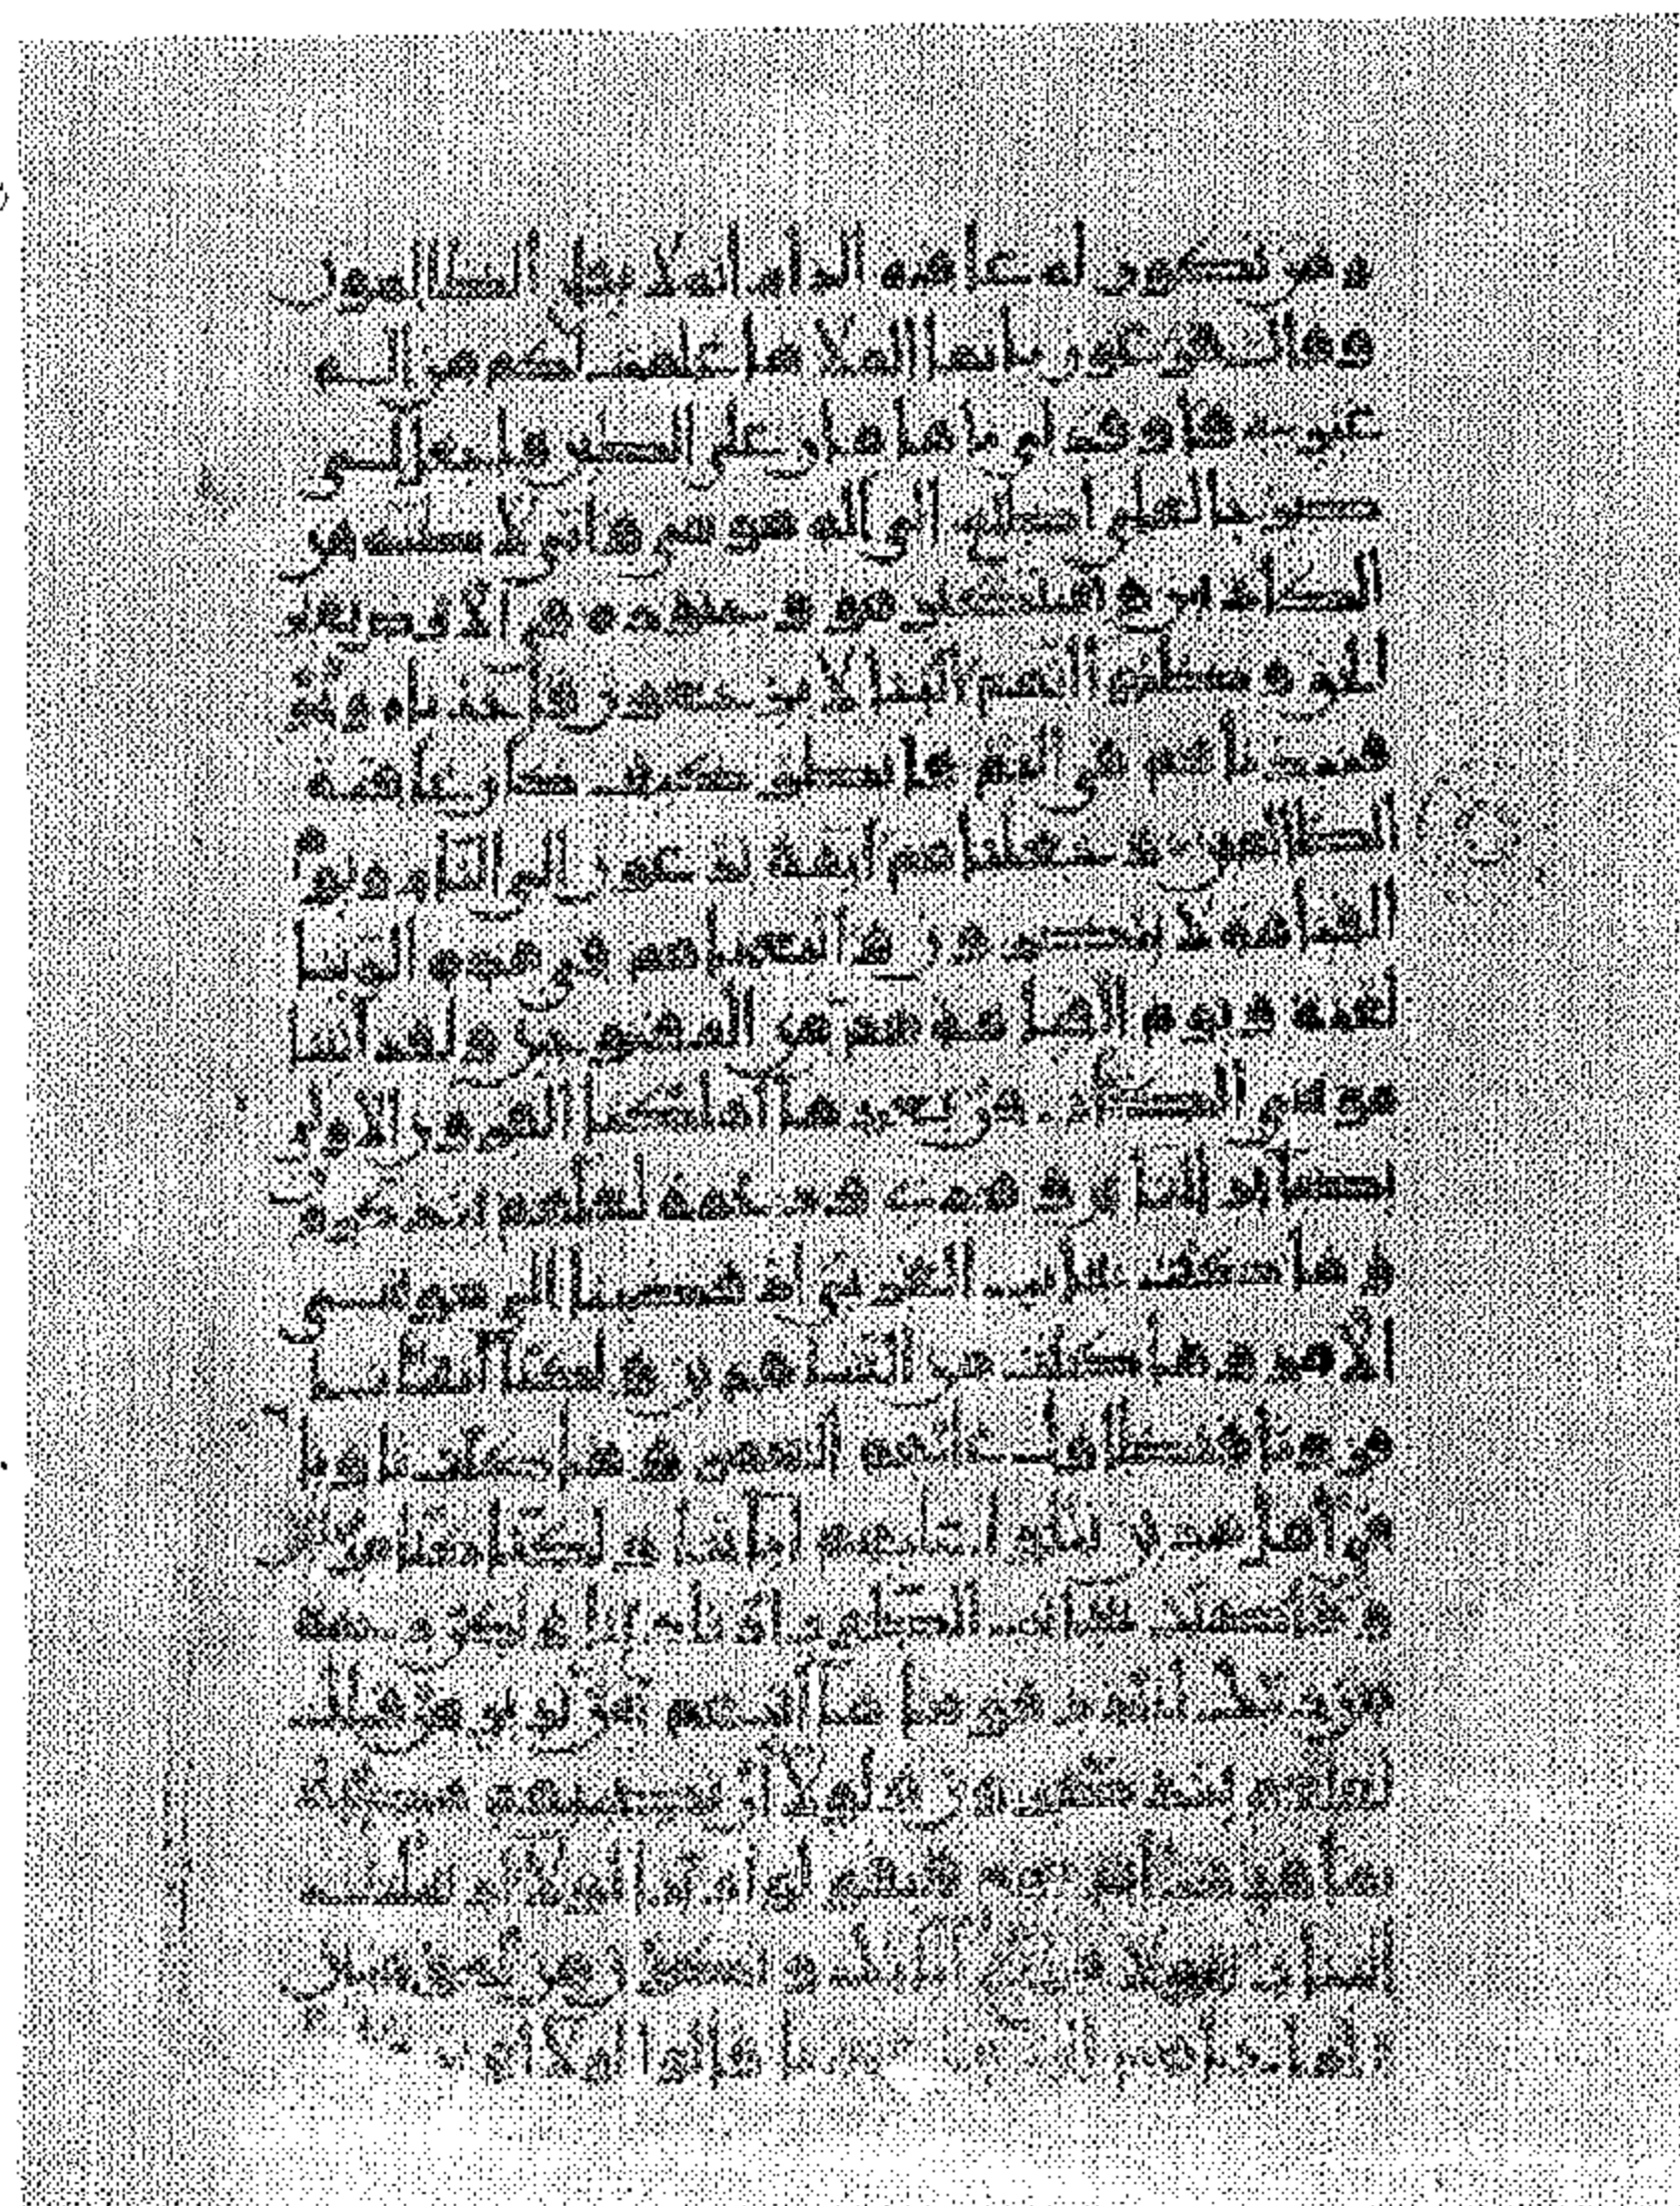 ومن تكون له عاقبة الدار انه لا يفلح الظالمون
وقال فرعون يا ايها الملا ما علمت لكم من اله
غيري فاوقد لي يا هامان على الطين فاجعل لي
صرحا لعلي اطلع الى اله موسى واني لاظنه من
الكاذبين واستكبر هو وجنوده في الارض بغير
الحق وظنوا انهم الينا لا يرجعون فاخذناه وجنو
فنبذناهم في اليم فانظر كيف كان عاقبة
الظالمين وجعلناهم ايمة يدعون الى النار ويوم
القيامة لا ينصرون واتبعناهم في هذه الدنيا
لعنة ويوم القيامة هم من المقبوحين ولقد اتينا
موسى الكتاب من بعد ما اهلكنا القرون الاولى
بصاير للناس وهدى ورحمة لعلهم يتذكرو
وما كنت بجانب الغربي اذ قضينا الى موسى
الامر وما كنت من الشاهدين ولكنا انشانا
قرونا فتطاول عليهم العمر وما كنت ثاويا
في اهل مدين تتلو عليهم اياتنا ولكنا كنا مرسلين
وما كنت بجانب الطور اذ نادينا ولكن رحمة
من ربك لتنذر قوما ما اتيهم من نذير من قبلك
لعلهم يتذكرون ولولا ان تصيبهم مصيبة
بما قدمت ايديهم فيقولو ربنا لولا ارسلت
الينا رسولا فنتبع اياتك ونكون من المومنين
فلما جاهم الحق من عندنا قالوا لولا اوتي